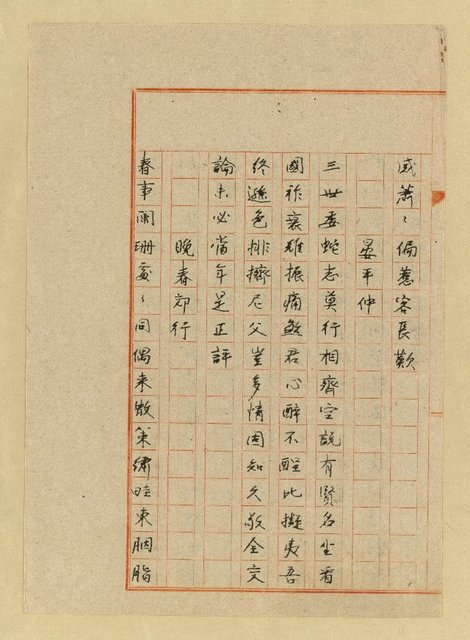 感蕭〻偏惹客長歎
晏平仲
三世委蛇志莫行相齊空說有賢名坐看
國祚衰難振痛煞君心醉不醒比擬夷吾
終遜色排擠尼父豈多情固知久敬全交
論未必當年是正評
晚春郊行
春事闌珊處〻同偶來散策繡畦東胭脂